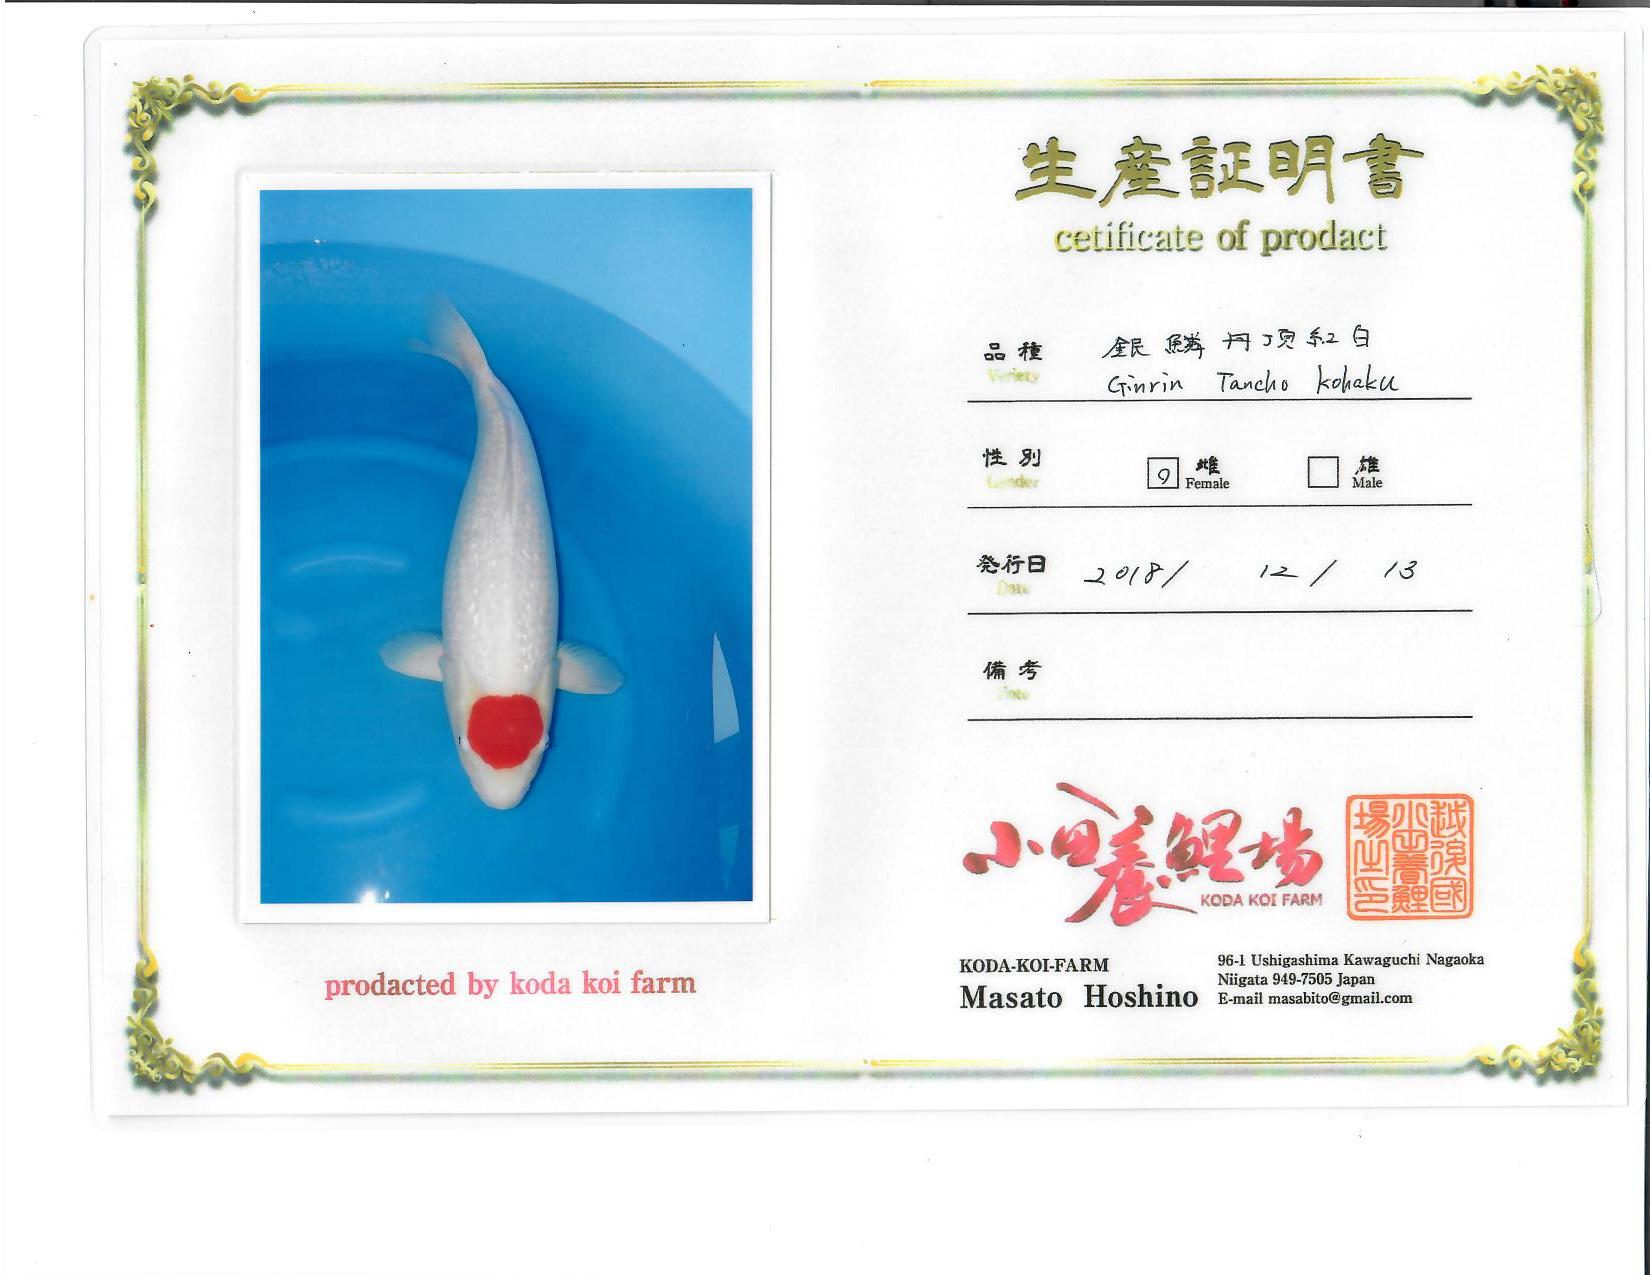 生産証明書
cetificate of prodact
品種 銀鱗丹頂紅白
Variety Ginrin Tancho Kohaku
性別 雌 雄
Gender Female Male
発行日 2018/ 12/ 13
Date
備考
Note
小田養鯉場
KODA KOI FARM
越後國
小田養鯉
場之印
prodacted by koda koi farm
KODA-KOI-FARM
Masato Hoshino
96-1 Ushigashima Kawaguchi Nagaoka
Niigata 949-7505 Japan
E-mail masabito@gmail.com